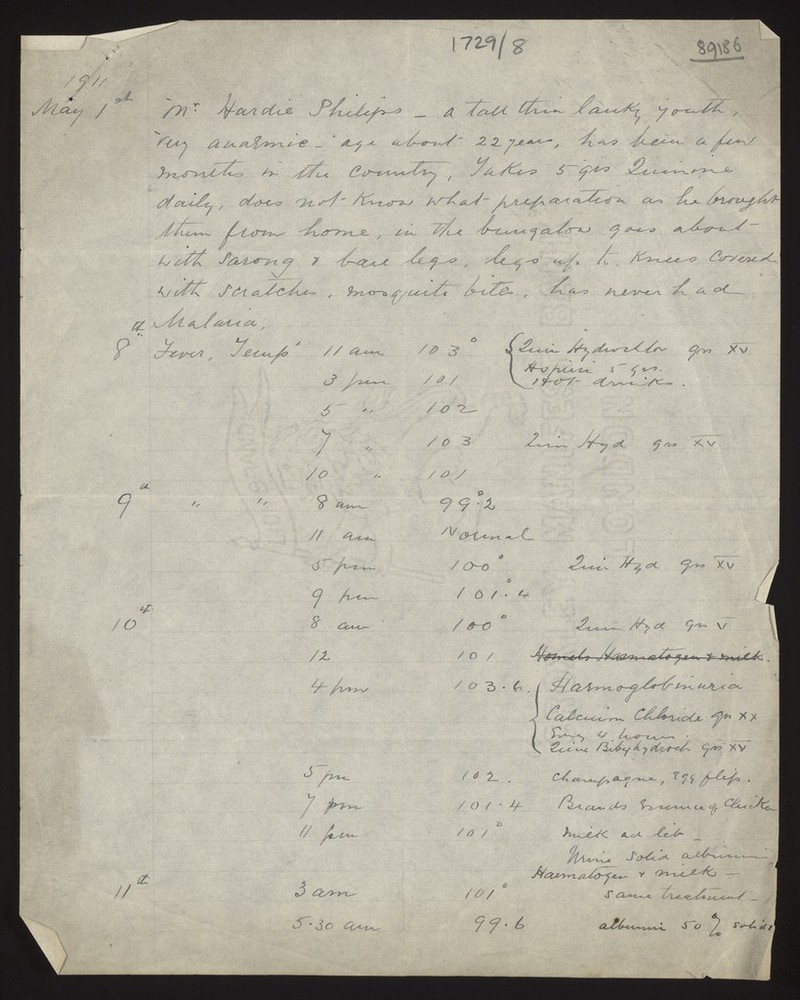 1729/8
89186
1911
May 1st Mr Hardie Philips - a tall thin lanky youth,
very anaemic - age about 22 years, has been a few
months in the country, Takes 5 grs Quinine
daily, does not know what preparation as he brought
them from home, in the bungalow goes about
with Sarong & bare legs, legs up to knees covered
with scratches, mosquito bites, has never had
Malaria,
8th Fever, Temp 11 am 103° Quin Hydrochlor grs XV
Aspirin 5 grs.
3 pm 101 Hot drinks.
5 " 102
7 " 103 Quin Hyd grs XV
10 " 101
9th " " 8 am 99°.2
11 am Normal
5 pm 100° Quin Hyd grs XV
9 pm 101°.4
10th 8 am 100° Quin Hyd grs V
12 101 Haematogen & milk.
4 pm 103.6. Haemoglobinuria
Calcium Chloride grs XX
Every 4 hours.
Quin Bihydroch grs XV
5 pm 102. Champagne, egg flips.
7 pm 101.4 Brands Essence of Chicken
11 pm 101° Milk ad lib -
Urine Solid albumin
Haematogen & milk -
11th 3 am 101° Same treatment -
5.30 am 99.6 albumin 50% solids